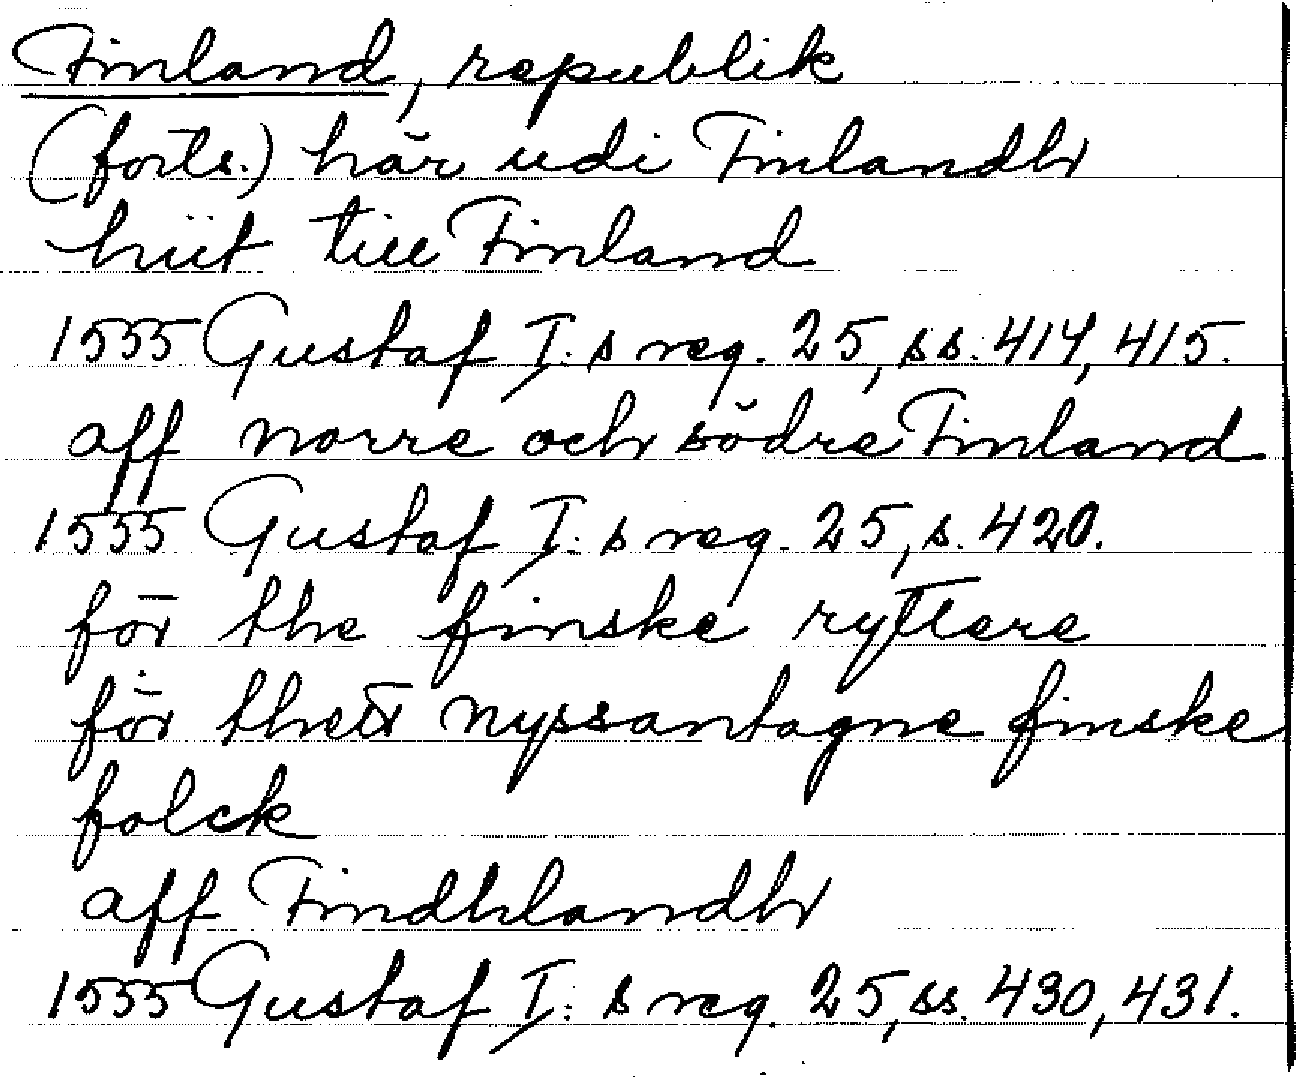 Finland, republik
(forts.) här udi Finlandh
hiit till Finland
1555 Gustaf I:s reg. 25, ss. 414, 415.
aff norre och södre Finland
1555 Gustaf I:s reg. 25, s. 420.
för the finske ryttere
för thett nyssantagne finske
folck
aff Findhlandh
1555 Gustaf I:s reg. 25, ss. 430, 431.